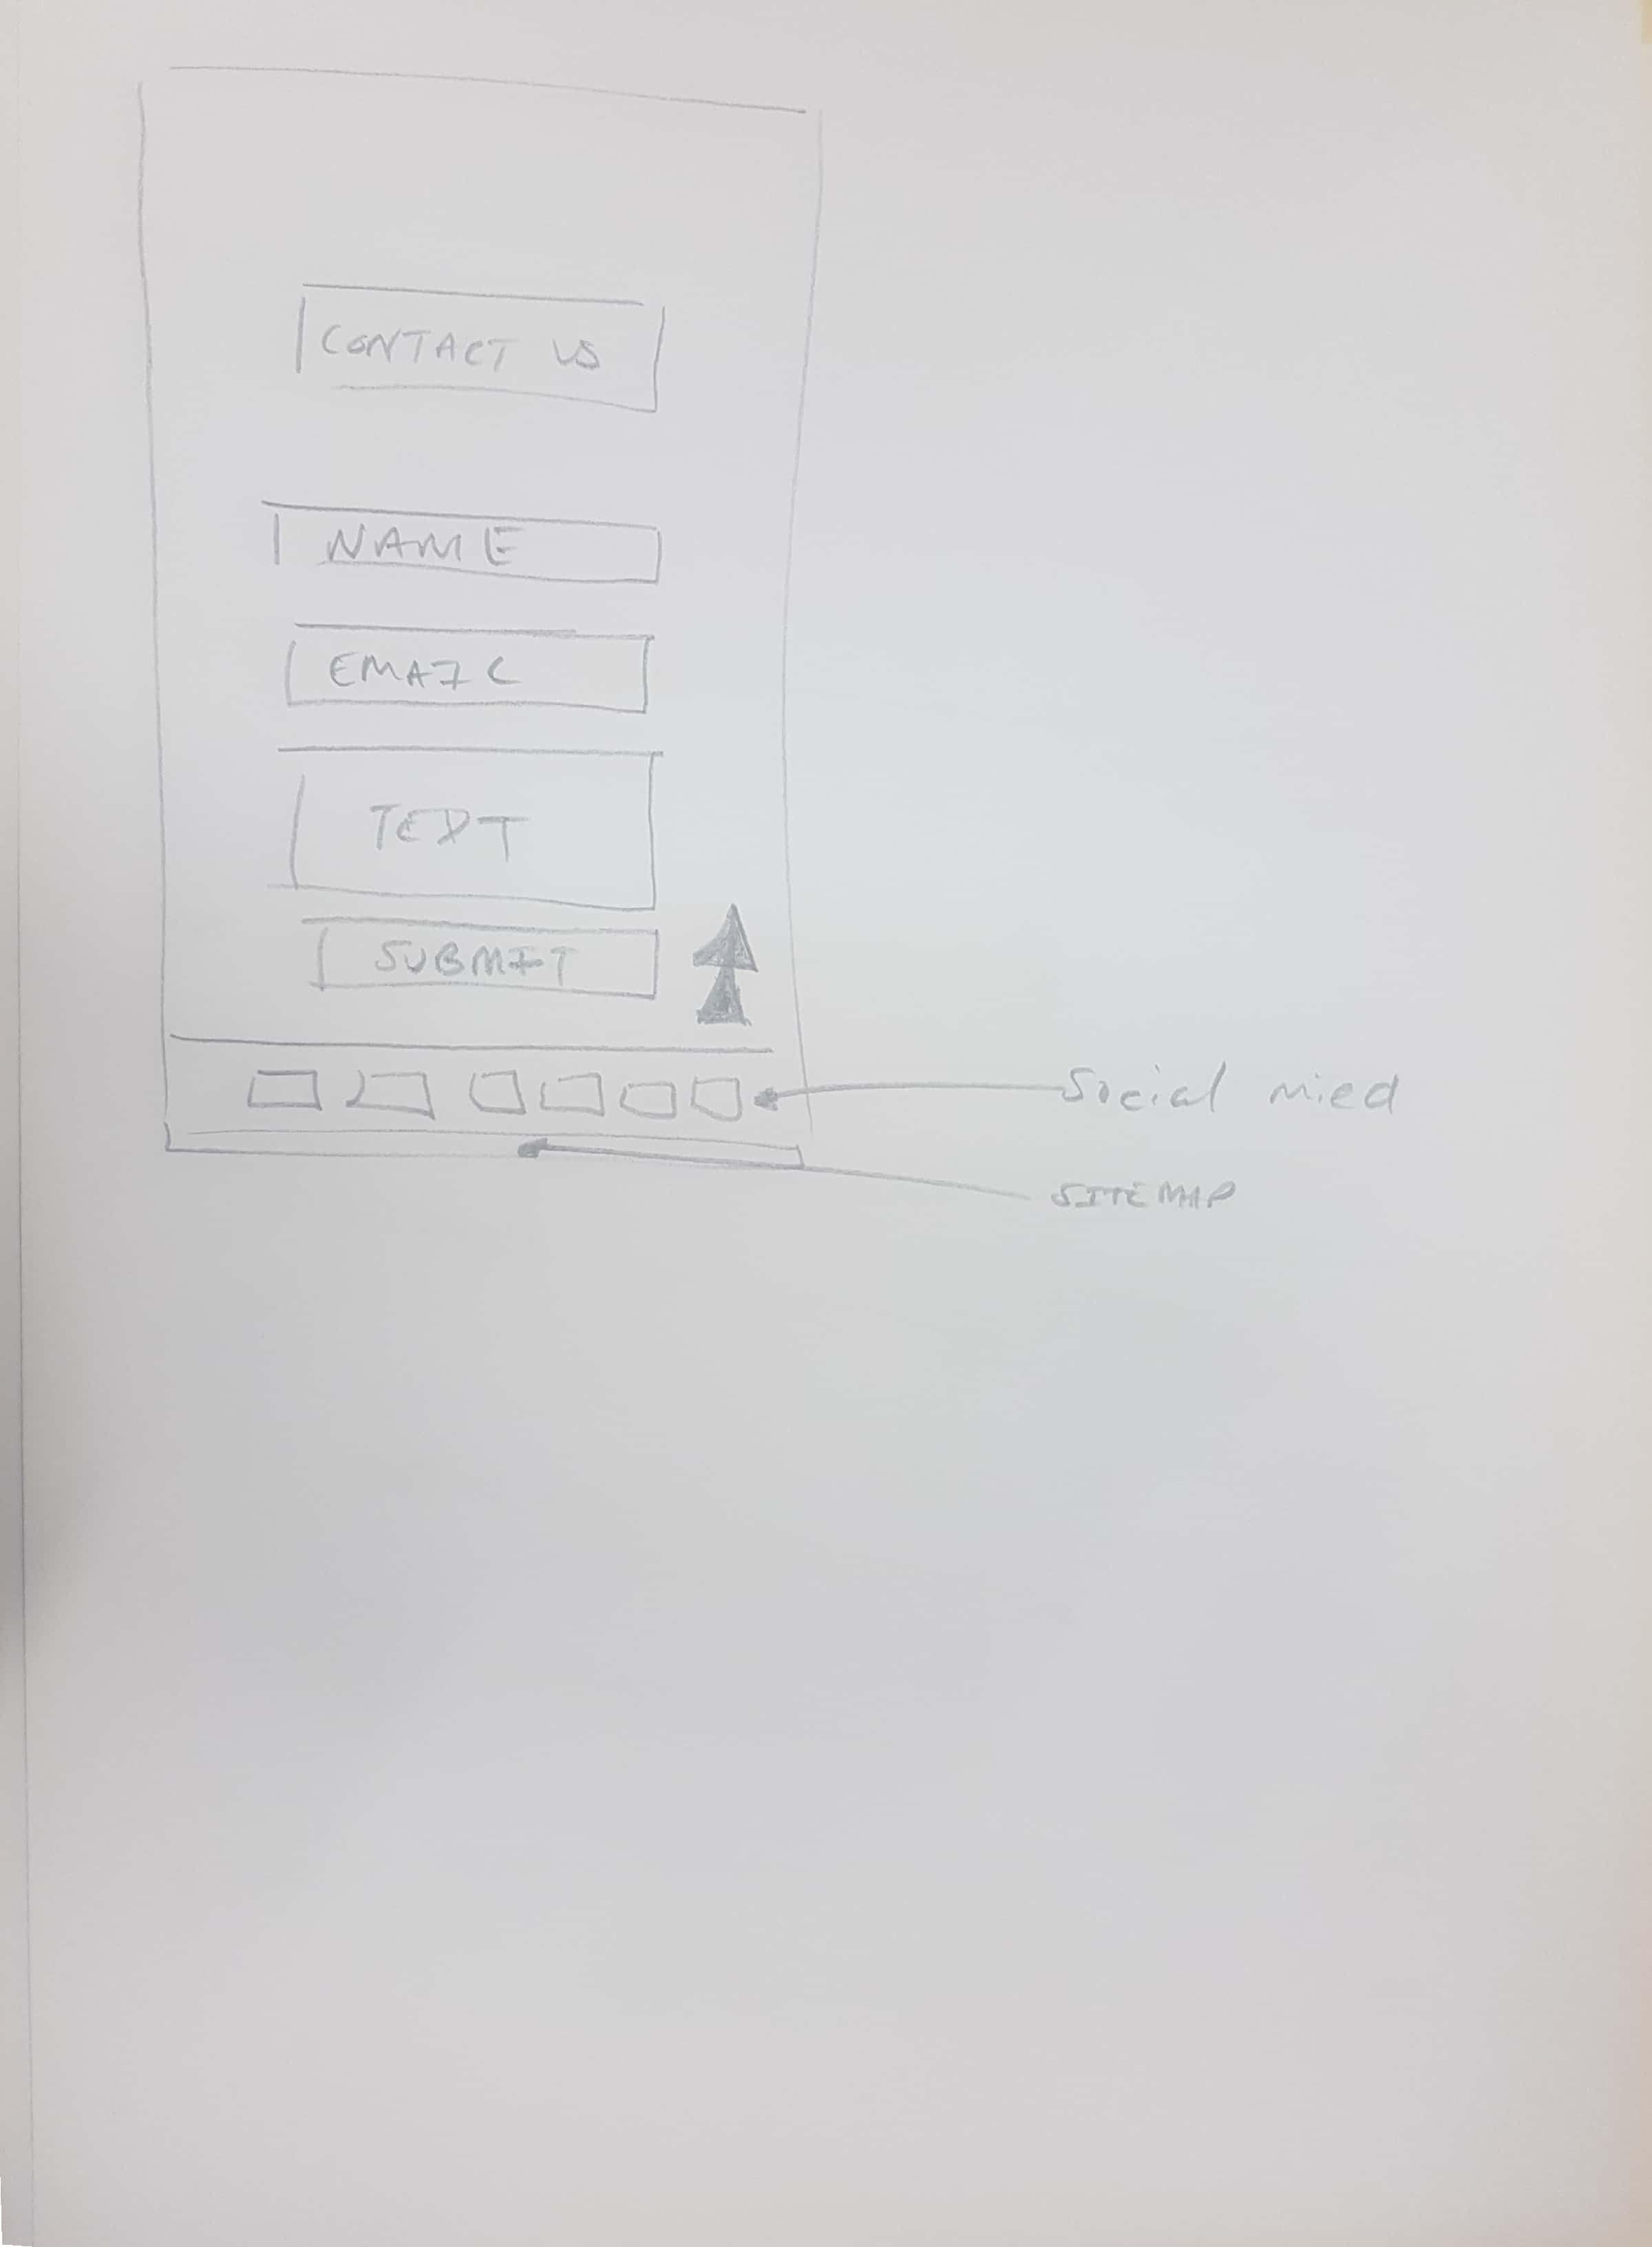 CONTACT US
NAME
EMAIL
TEXT
SUBMIT
Social mied
SITEMAP